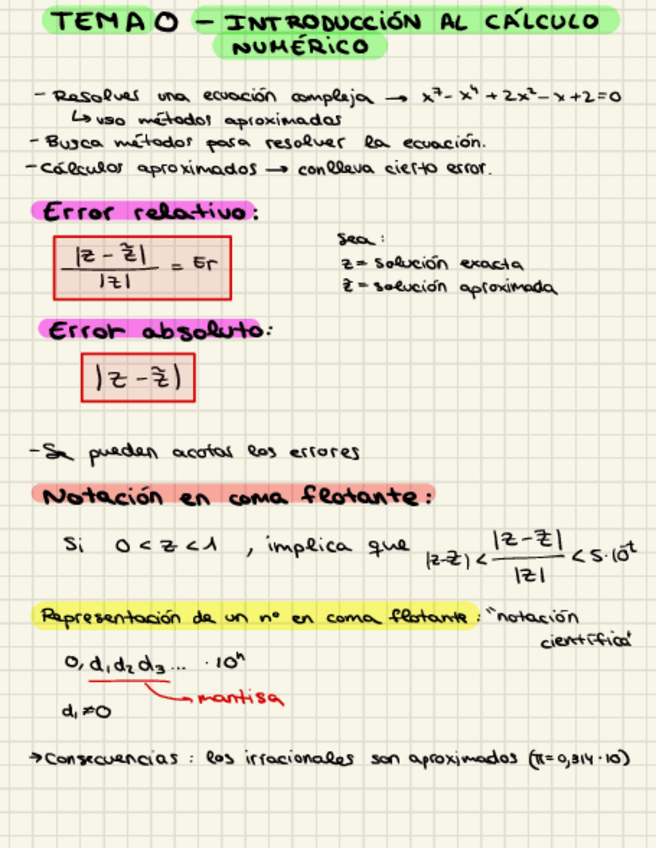 TEMA 0 - INTRODUCCIÓN AL CÁLCULO
NUMÉRICO
- Resolver una ecuación compleja → x⁷- x⁴ + 2x² - x + 2 = 0
↳ uso métodos aproximados
- Busca métodos para resolver la ecuación.
- Cálculos aproximados → conlleva cierto error.
Error relativo:
|z - z̃| / |z| = Er
Sea:
z = solución exacta
z̃ = solución aproximada
Error absoluto:
|z - z̃|
- Se pueden acotar los errores
Notación en coma flotante:
Si 0 < z < 1 , implica que |z-z̃| < |z - z̃| / |z| < 5·10⁻ᵗ
Representación de un nº en coma flotante: "notación
científica"
0, d₁ d₂ d₃ ... · 10ⁿ
mantisa
d₁ ≠ 0
→ Consecuencias : los irracionales son aproximados (π = 0,314 · 10)